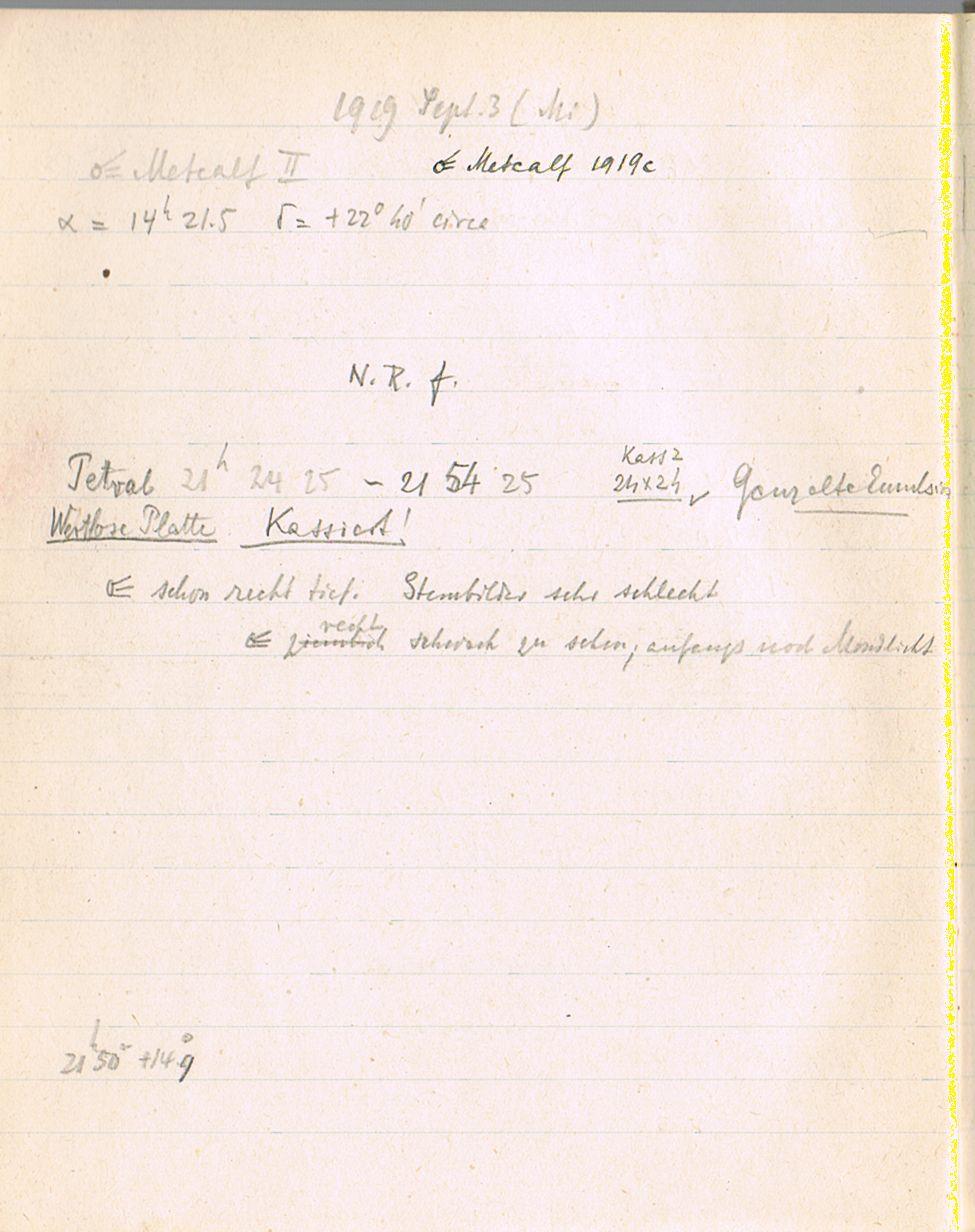 1919 Sept. 3 (Mi)
☄ Metcalf II ☄ Metcalf 1919c
α = 14ʰ 21.5 δ = +22° 40' circa
N. R. f.
Petval 21ʰ 24 25 – 21 54 25 Kass 2 24x24 Ganz alte Emulsion
Wertlose Platte Kassiert!
☄ schon recht tief. Sternbilder sehr schlecht
☄ ziemlich recht schwach zu sehen, anfangs noch Mondlicht
21ʰ50ᵐ +14.°9